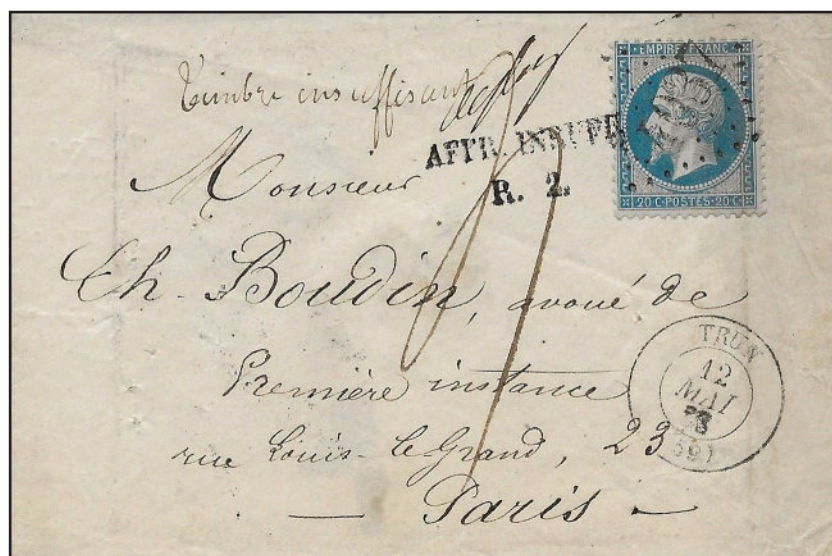 EMPIRE FRANC
Timbre insuffisant
AFFR. INSUFF
R. 2.
20 C·POSTES·20 C
Monsieur
Ch. Boudin, avoué de
Première instance
rue Louis-le-Grand, 23
— Paris —
TRUN
12
MAI
(59)